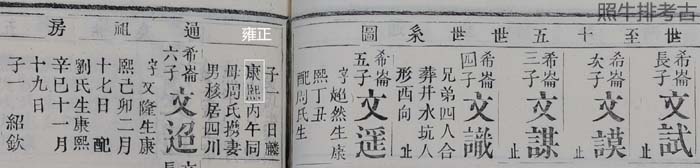 照牛排考古
世至十五世世系圖
希崙長子 文試 止
希崙次子 文謨 止
希崙三子 文謀 止
希崙四子 文識 止
兄弟四人合
葬井水坑人
形西向
希崙五子 文遥
字超然生康
熙丁丑
配周氏生
通祖房
子一 日麟
雍正
康熙丙午同
母周氏携妻
男移居四川
希崙六子 文迢
字文隆生康
熙己卯二月
十七日 配
劉氏生康熙
辛巳十一月
十九日
子一 紹欽